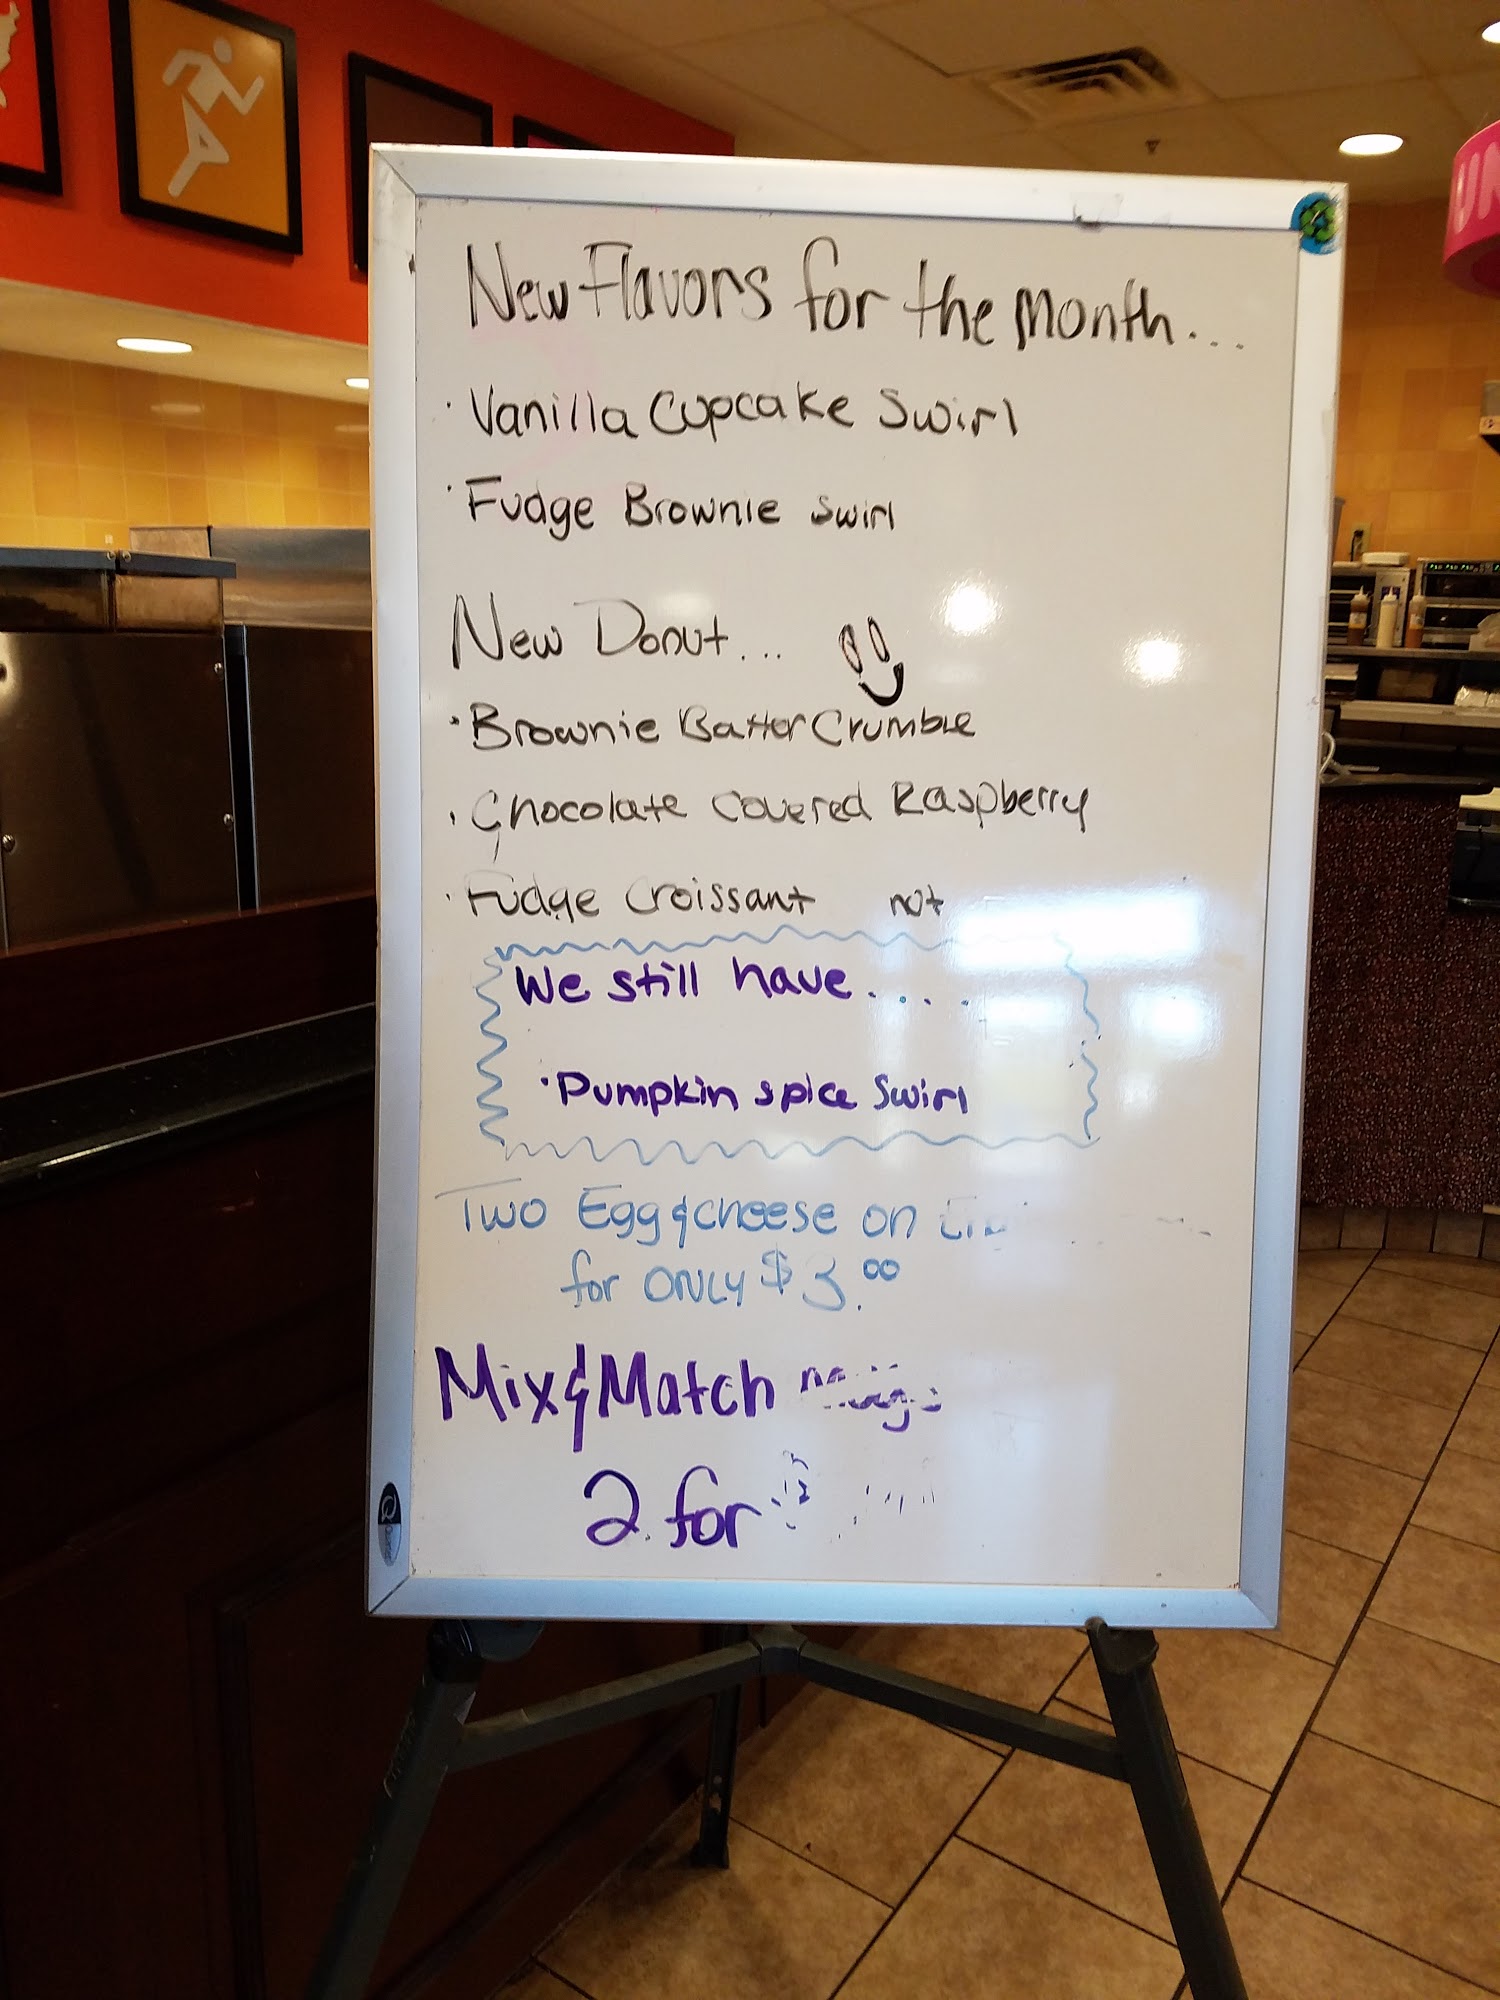 New Flavors for the Month...
· Vanilla Cupcake Swirl
· Fudge Brownie swirl
New Donut...
· Brownie Batter Crumble
· Chocolate covered Raspberry
· Fudge Croissant not
We still have.....
· Pumpkin spice Swirl
Two Egg & cheese on
for ONLY $3.00
Mix & Match
2 for
UN